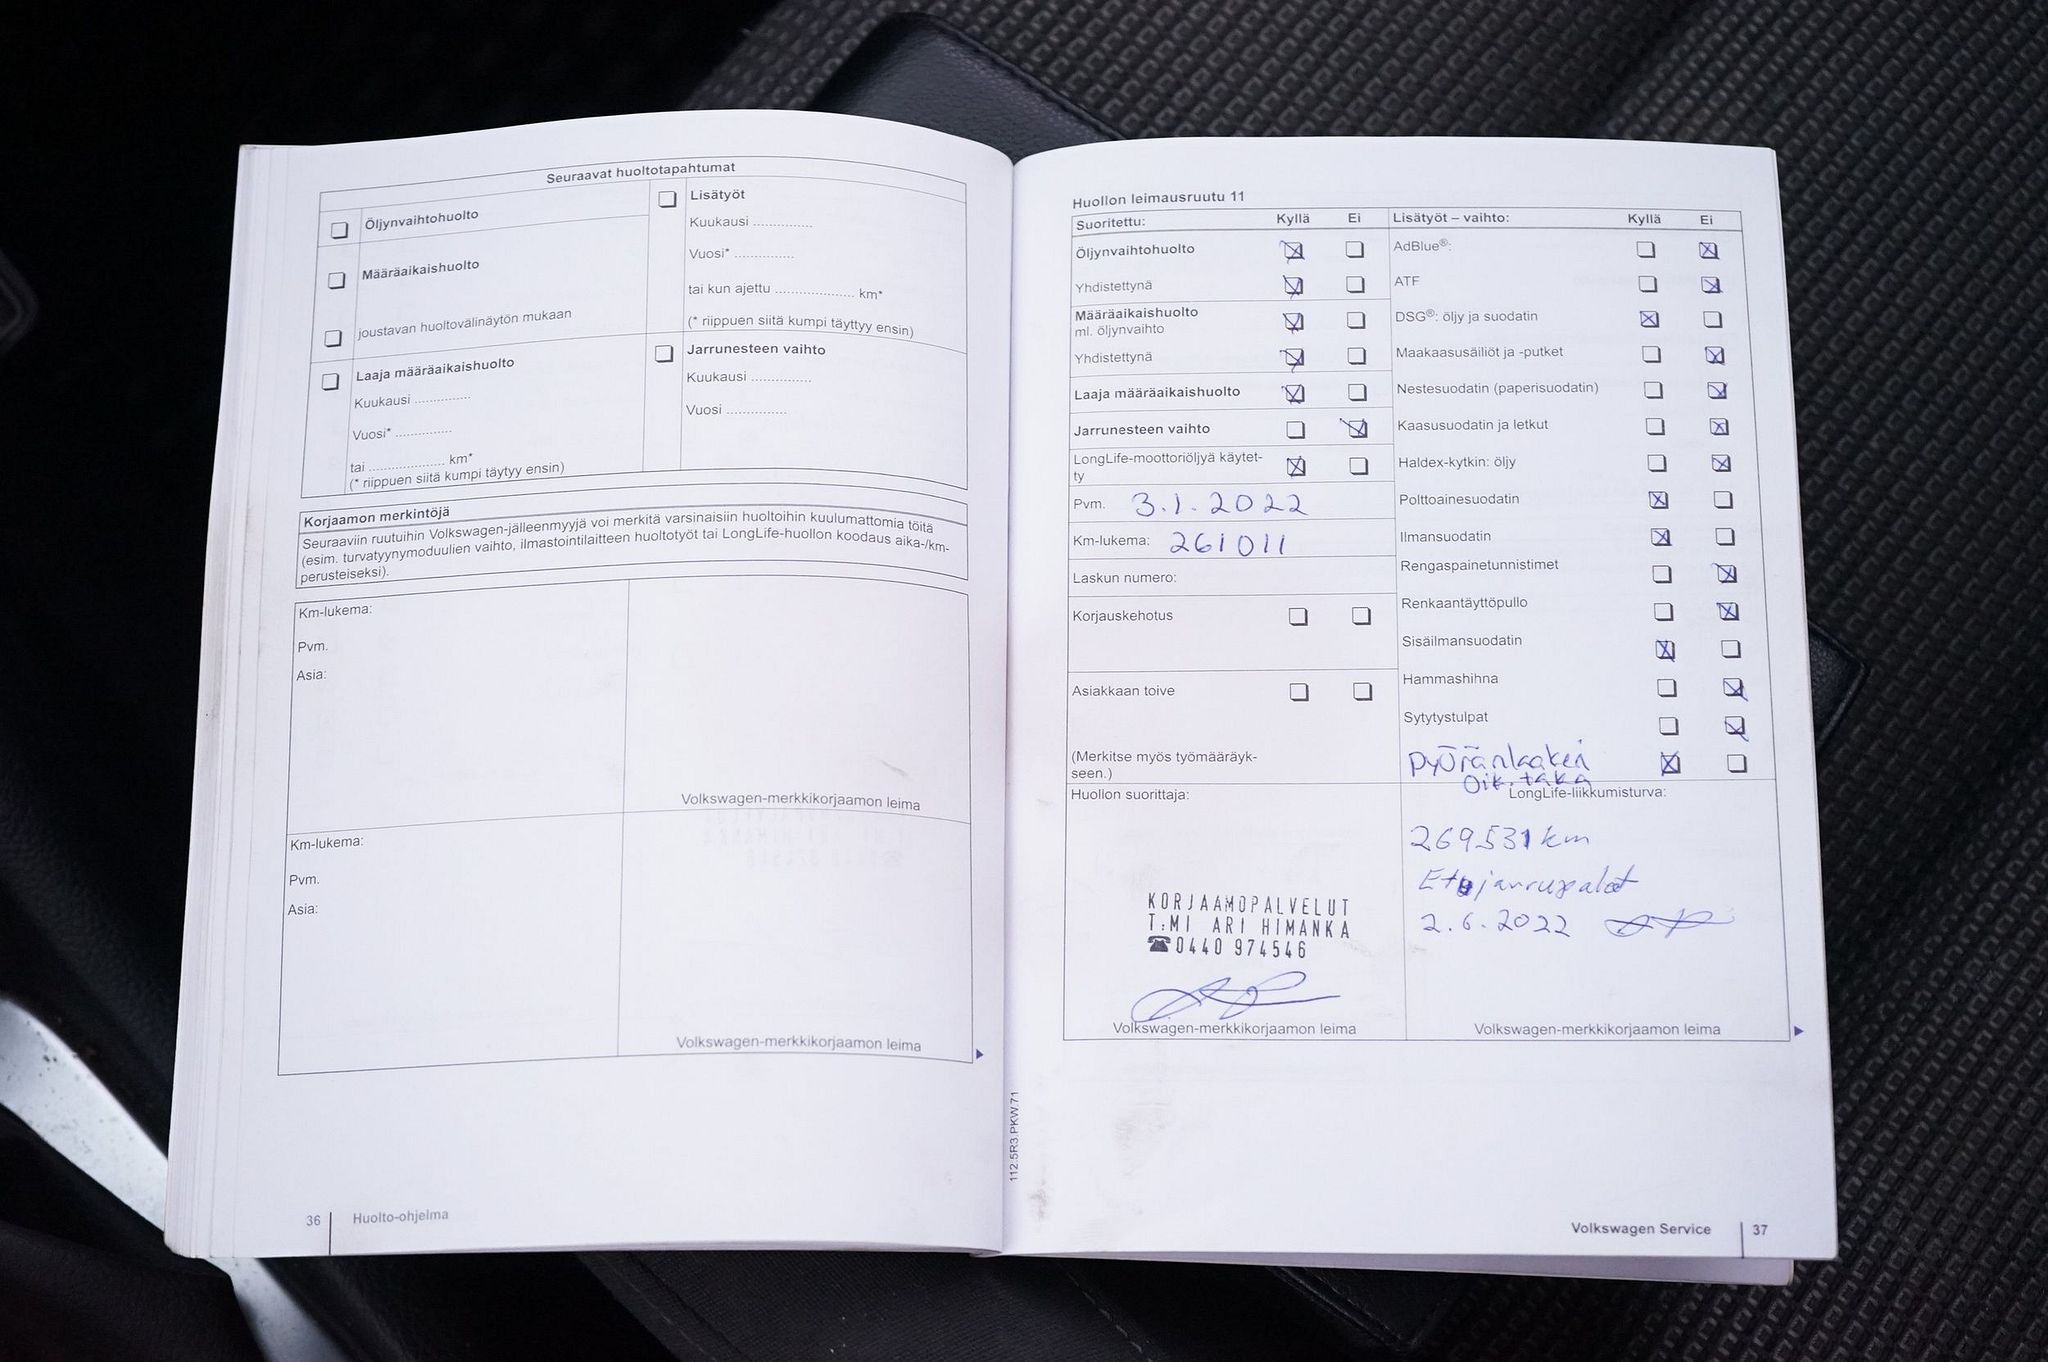 Seuraavat huoltotapahtumat
Öljynvaihtohuolto
Määräaikaishuolto
joustavan huoltovälinäytön mukaan
Laaja määräaikaishuolto
Kuukausi ..............
Vuosi* ..............
tai .................... km*
(* riippuen siitä kumpi täytyy ensin)
Lisätyöt
Kuukausi ..............
Vuosi* ..............
tai kun ajettu .................... km*
(* riippuen siitä kumpi täyttyy ensin)
Jarrunesteen vaihto
Kuukausi ..............
Vuosi ..............
Korjaamon merkintöjä
Seuraaviin ruutuihin Volkswagen-jälleenmyyjä voi merkitä varsinaisiin huoltoihin kuulumattomia töitä
(esim. turvatyynymoduulien vaihto, ilmastointilaitteen huoltotyöt tai LongLife-huollon koodaus aika-/km-
perusteiseksi).
Km-lukema:
Pvm.
Asia:
Volkswagen-merkkikorjaamon leima
Km-lukema:
Pvm.
Asia:
Volkswagen-merkkikorjaamon leima
36 Huolto-ohjelma
112.5R3.PKW.71
Huollon leimausruutu 11
Suoritettu: Kyllä Ei
Öljynvaihtohuolto
Yhdistettynä
Määräaikaishuolto
ml. öljynvaihto
Yhdistettynä
Laaja määräaikaishuolto
Jarrunesteen vaihto
LongLife-moottoriöljyä käytet-
ty
Pvm. 3.1.2022
Km-lukema: 261011
Laskun numero:
Korjauskehotus
Asiakkaan toive
(Merkitse myös työmääräyk-
seen.)
Huollon suorittaja:
KORJAAMOPALVELUT
T:MI ARI HIMANKA
☎0440 974546
Volkswagen-merkkikorjaamon leima
Lisätyöt – vaihto: Kyllä Ei
AdBlue®:
ATF
DSG®: öljy ja suodatin
Maakaasusäiliöt ja -putket
Nestesuodatin (paperisuodatin)
Kaasusuodatin ja letkut
Haldex-kytkin: öljy
Polttoainesuodatin
Ilmansuodatin
Rengaspainetunnistimet
Renkaantäyttöpullo
Sisäilmansuodatin
Hammashihna
Sytytystulpat
Pyöränlaakeri
Oik. taka
LongLife-liikkumisturva:
269531 km
Etujarrupalat
2.6.2022
Volkswagen-merkkikorjaamon leima
Volkswagen Service 37